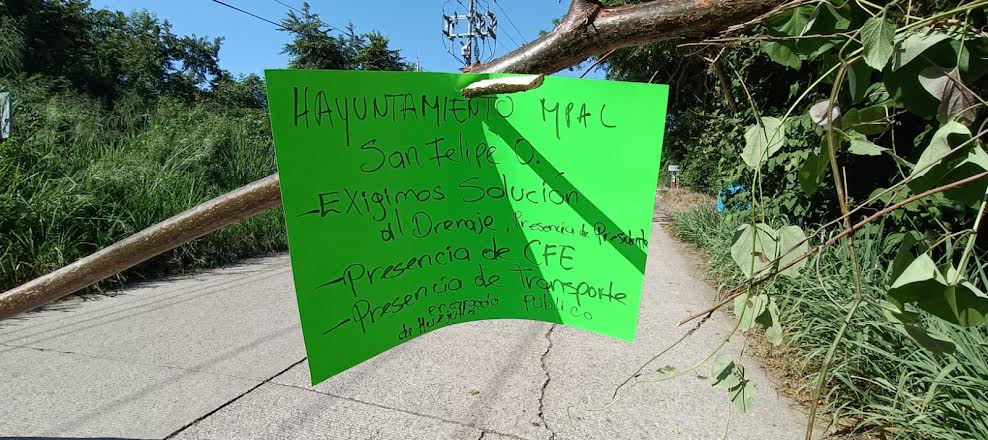 HAYUNTAMIENTO MPAL
San Felipe O.
- EXigimos Solución
al Drenaje, Presencia de Presidente
- Presencia de CFE
- Presencia de Transporte
encargado Público
de Huejutla